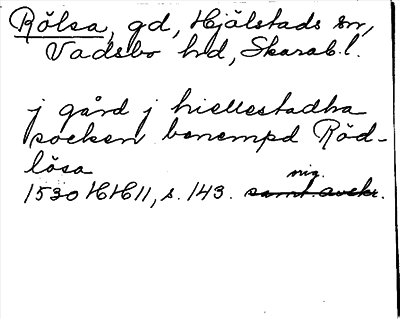 Rölsa, gd, Hjälstads sn,
Vadsbo hd, Skarab. l.
j gård j hiellestadha
socken benempd Röd-
lösa
1530 HH 11, s. 143. samt. avskr. orig.